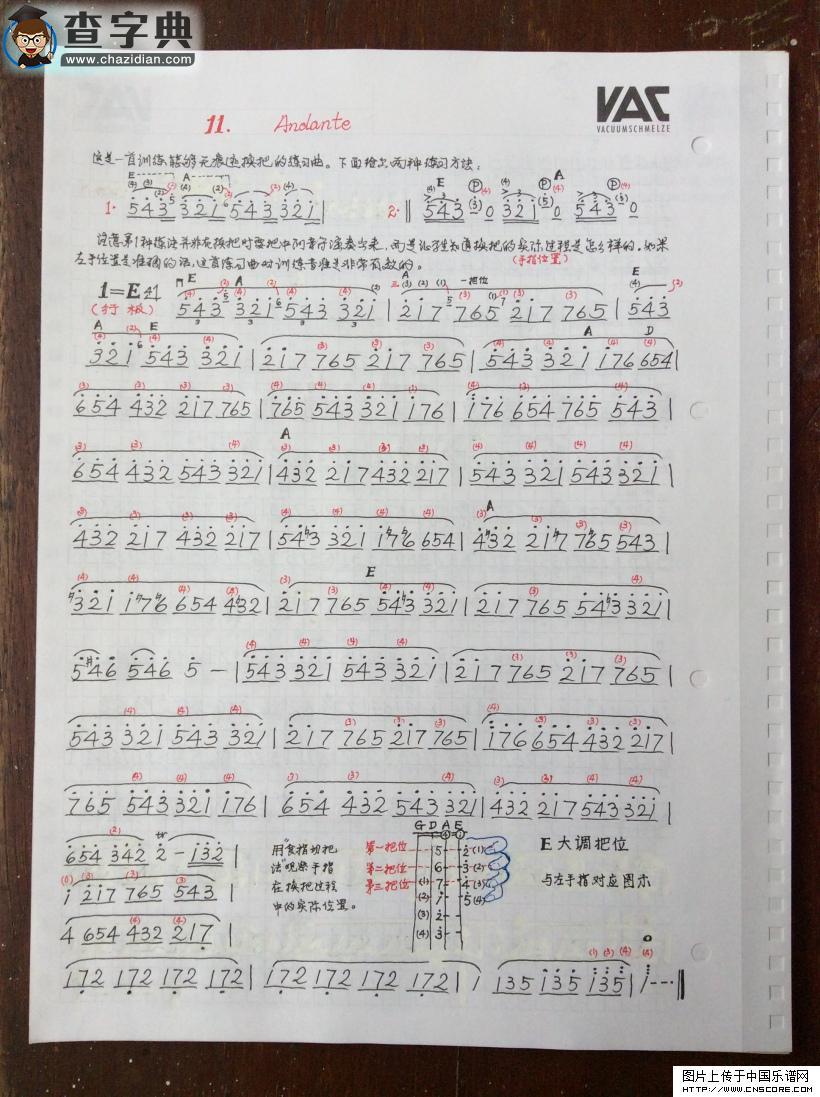 查字典
www.chazidian.com
VAC
VACUUMSCHMELZE
11. Andante
这是一首训练能够无痕迹换把的练习曲。下面给出两种练习方法:
1. 543 321 543 321
2. 543 0 321 0 543 0
左手位置是准确的话,这首练习曲对训练音准是非常有效的。
(手指位置)
1=E 4/4
(行板)
一把位
543 321 543 321 | 217 765 217 765 | 543
321 543 321 | 217 765 217 765 | 543 321 176 654 |
654 432 217 765 | 765 543 321 176 | 176 654 765 543 |
654 432 543 321 | 432 217 432 217 | 543 321 543 321 |
432 217 432 217 | 543 321 176 654 | 432 217 765 543 |
321 176 654 432 | 217 765 543 321 | 217 765 543 321 |
546 546 5 — | 543 321 543 321 | 217 765 217 765 |
543 321 543 321 | 217 765 217 765 | 176 654 432 217 |
765 543 321 176 | 654 432 543 321 | 432 217 543 321 |
654 342 2 — 132 |
1 217 765 543 |
4 654 432 217 |
用"食指切把
法"观察手指
在换把过程
中的实际位置。
G D A E
第一把位 5 2 (1)
第二把位 6 3 (2)
第三把位 (1) 7 4 (3)
(2) 1 5 (4)
(3) 2
(4) 3
E大调把位
与左手指对应图示
172 172 172 172 | 172 172 172 172 | 1 135 135 135 | 1---
图片上传于中国乐谱网
HTTP://WWW.CNSCORE.COM